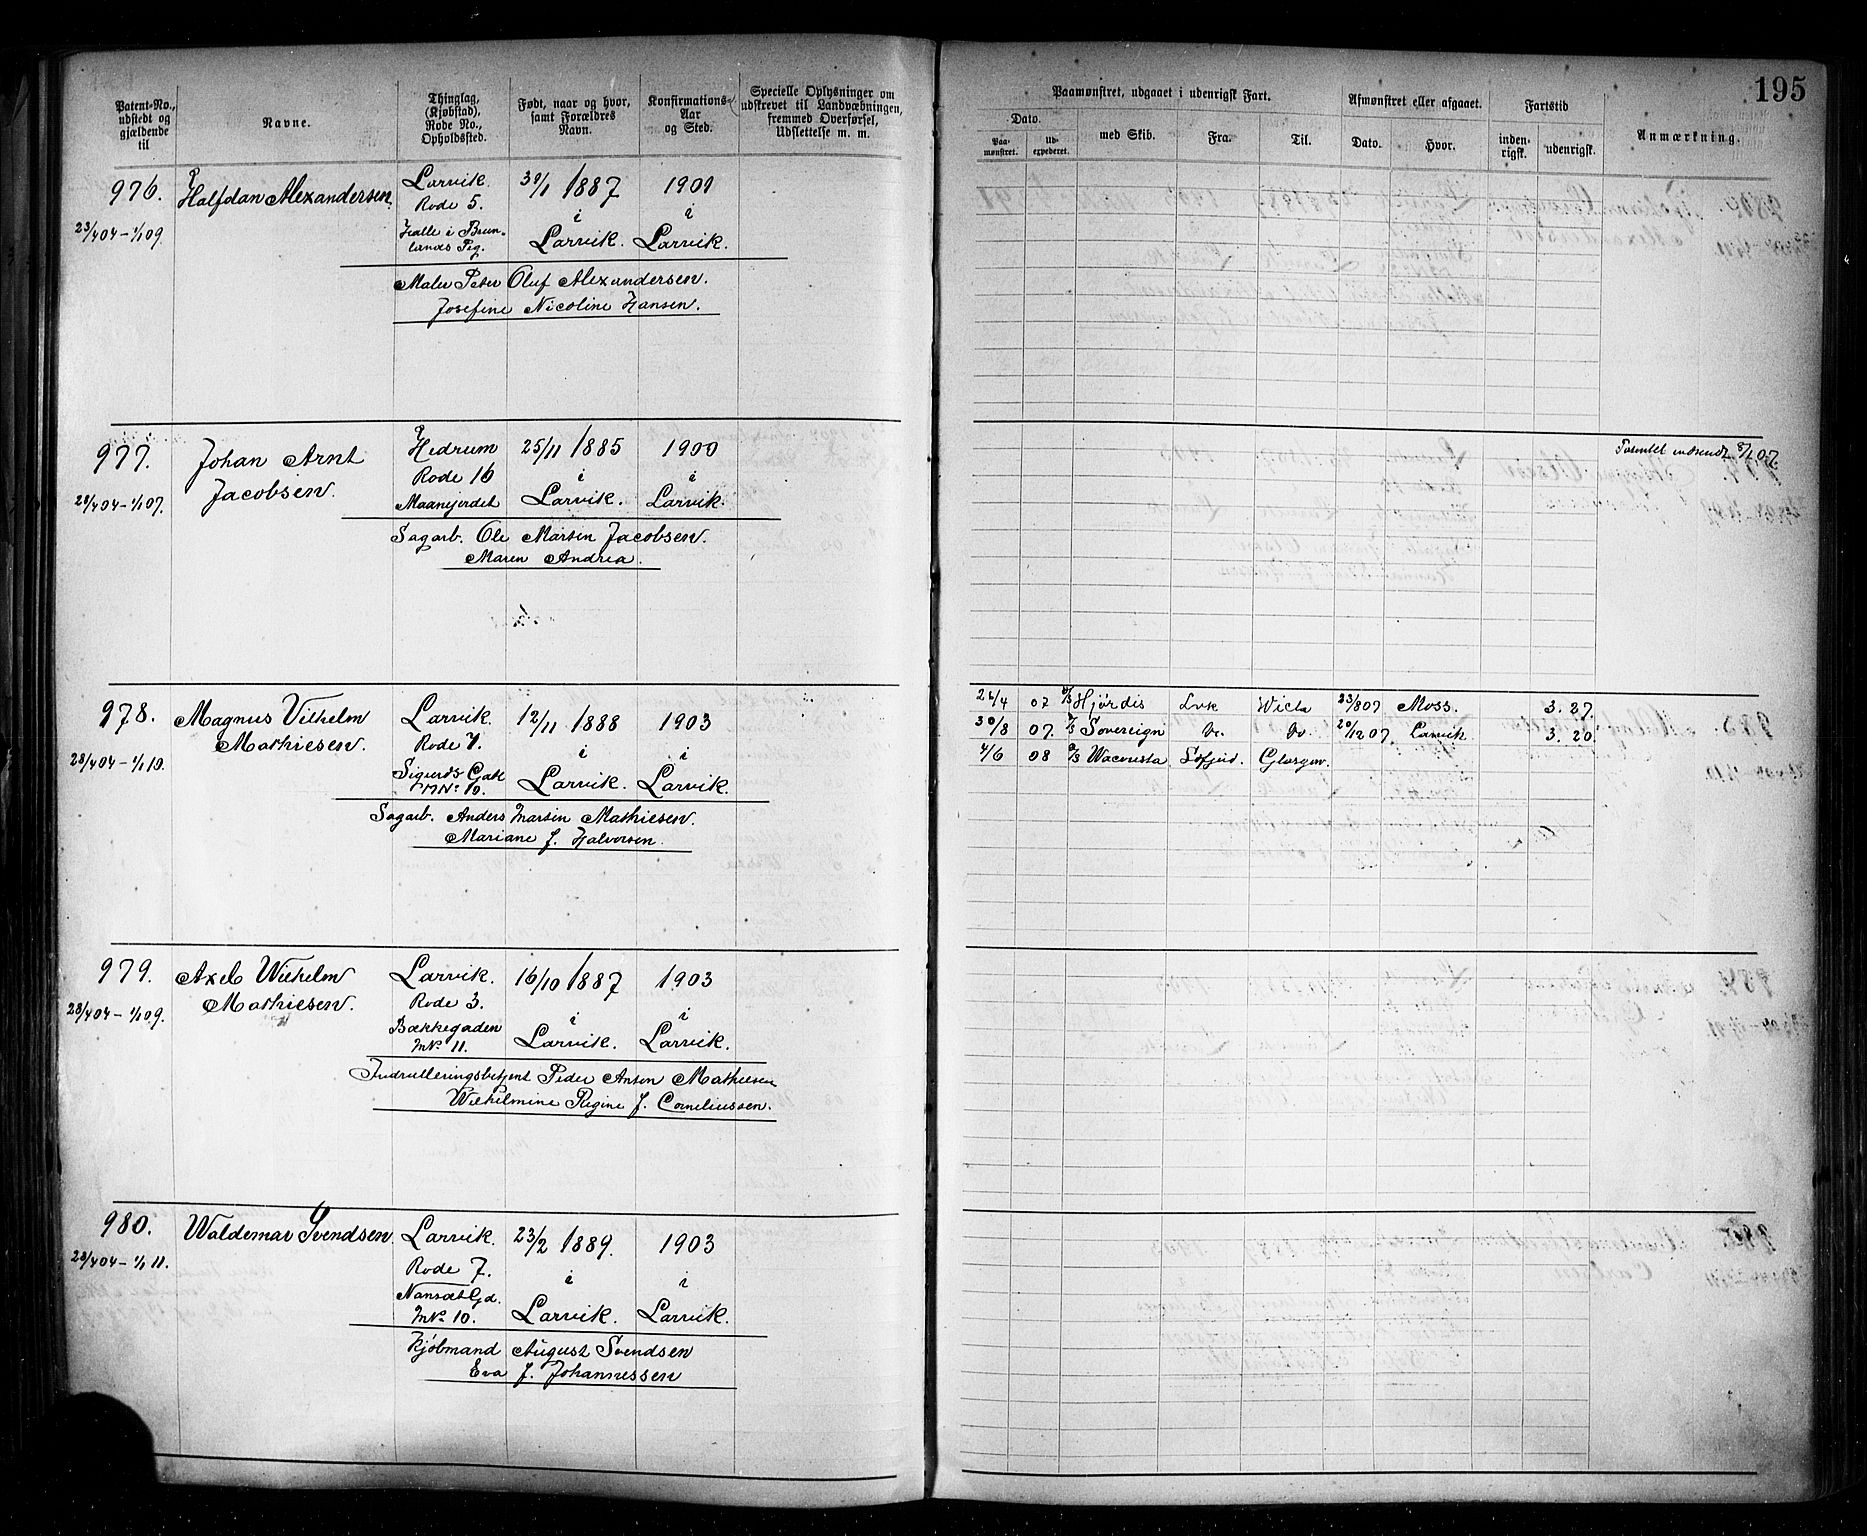 195
Patent-No., udstedt og gjældende til
Navne.
Thinglag, (Kjøbstad), Rode No., Opholdssted.
Født, naar og hvor, samt Forældres Navn.
Konfirmations-Aar og Sted.
Specielle Oplysninger om udskrevet til Landvæbningen, fremmed Overførsel, Udslettelse m. m.
Paamønstret, udgaaet i udenrigsk Fart.
Dato.
Paa-mønstret.
Ud-expederet.
med Skib.
Fra.
Til.
Afmønstret eller afgaaet.
Dato.
Hvor.
Fartstid
inden-rigsk.
udenrigsk.
Anmærkning.
976. Halfdan Alexandersen Larvik. /1 1887 1901
Rode 5.
23/4 04 – 1/1 09. Halle i Brun- i i
lanäs Pg. Larvik. Larvik.
Maler Peter Oluf Alexandersen.
Josefine Nicoline Hansen.
977. Johan Arnt Hedrum 25/11 1885 1900
Jacobsen. Rode 16 i i
28/4 04 – 1/1 07. Maanejordet Larvik. Larvik.
Sagarb. Ole Martin Jacobsen.
Maren Andrea.
indsendt 8/1 07.
978. Magnus Vilhelm Larvik. 12/11 1888 1903
Mathiesen. Rode 7. i i
28/4 04 – 1/1 10. Sigurds Gade Larvik. Larvik.
MNo 10.
Sagarb. Anders Martin Mathiesen.
Mariane f. Halvorsen.
26/4 07 Hjørdis Lvk 23/8 07 Moss. 3. 27.
30/8 07. Sovereign Do. Do 20/12 07. Larvik 3. 20
4/6 08 Wacousta Glasgow.
979. Axel Wilhelm Larvik. 16/10 1887 1903
Mathiesen. Rode 3. i i
28/4 04 – 1/1 09. Bækkegaden Larvik. Larvik.
MNo 11.
Indrulleringsbetjent Peder Anton Mathiesen
Wilhelmine Regine f. Corneliussen.
980. Waldemar Svendsen Larvik. 23/2 1889. 1903
28/4 04 – 1/1 11. Rode 7. i i
Nansæt Gd.
MNo 10. Larvik. Larvik.
Kjøbmand August Svendsen
Eva f. Johannessen